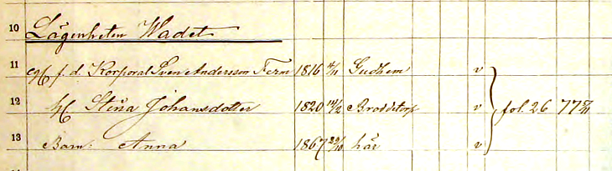 10 Lägenheten Wadet
11 f.d. Korporal Sven Andersson Ferm 1816 Gudhem v
12 H Stina Johansdotter 1820 14/2 Broddetorp v fol. 26 77
13 Barn: Anna 1867 här v